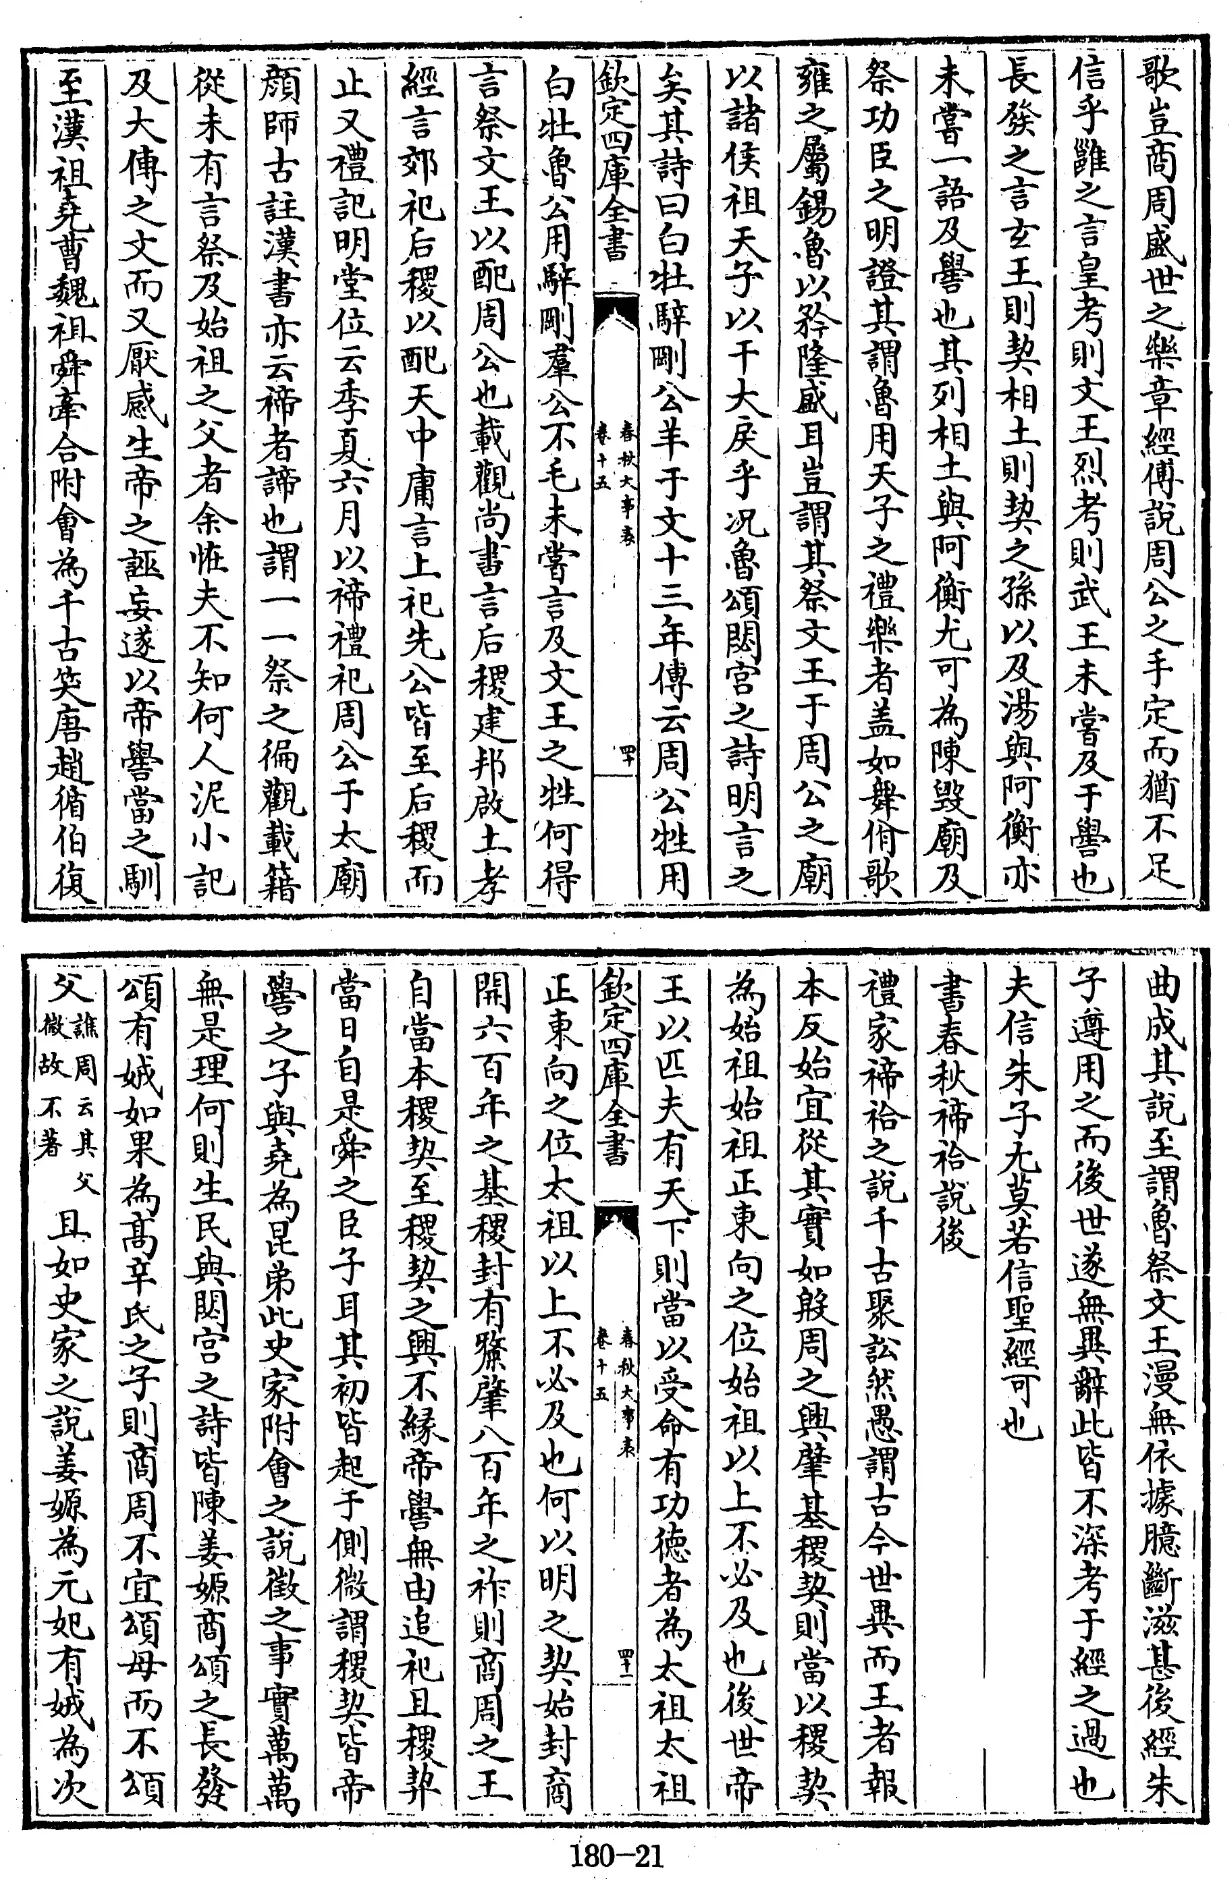 歌豈商周盛世之樂章經傅說周公之手定而猶不足
信乎雝之言皇考則文王烈考則武王未嘗及于嚳也
長發之言玄王則契相土則契之孫以及湯與阿衡亦
未嘗一語及嚳也其列相土與阿衡尤可為陳毀廟及
祭功臣之明證其謂魯用天子之禮樂者蓋如舞佾歌
雍之屬錫魯以矜隆盛耳豈謂其祭文王于周公之廟
以諸侯祖天子以干大戾乎況魯頌閟宮之詩明言之
矣其詩曰白牡騂剛公羊于文十三年傳云周公牲用
欽定四庫全書
春秋大事表
卷十五
四十
白牡魯公用騂剛羣公不毛未嘗言及文王之牲何得
言祭文王以配周公也載觀尚書言后稷建邦啟土孝
經言郊祀后稷以配天中庸言上祀先公皆至后稷而
止又禮記明堂位云季夏六月以禘禮祀周公于太廟
顏師古註漢書亦云禘者諦也謂一一祭之徧觀載籍
從未有言祭及始祖之父者余怪夫不知何人泥小記
及大傳之文而又厭感生帝之誣妄遂以帝嚳當之馴
至漢祖堯曹魏祖舜牽合附會為千古笑唐趙循伯復
曲成其說至謂魯祭文王漫無依據臆斷滋甚後經朱
子遵用之而後世遂無異辭此皆不深考于經之過也
夫信朱子尤莫若信聖經可也
書春秋禘祫說後
禮家禘祫之說千古聚訟然愚謂古今世異而王者報
本反始宜從其實如殷周之興肇基稷契則當以稷契
為始祖始祖正東向之位始祖以上不必及也後世帝
王以匹夫有天下則當以受命有功德者為太祖太祖
欽定四庫全書
春秋大事表
卷十五
四十一
正東向之位太祖以上不必及也何以明之契始封商
開六百年之基稷封有邰肇八百年之祚則商周之王
自當本稷契至稷契之興不緣帝嚳無由追祀且稷契
當日自是舜之臣子耳其初皆起于側微謂稷契皆帝
嚳之子與堯為昆弟此史家附會之說徵之事實萬萬
無是理何則生民與閟宮之詩皆陳姜嫄商頌之長發
頌有娀如果為高辛氏之子則商周不宜頌母而不頌
父譙周云其父微故不著且如史家之說姜嫄為元妃有娀為次
180-21